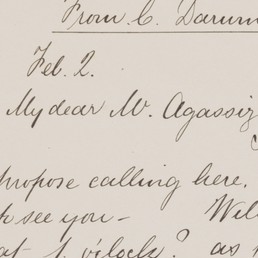 From C. Darwin
Feb. 2.
My dear Mr. Agassiz
propose calling here.
to see you –
at 1 o'clock? as